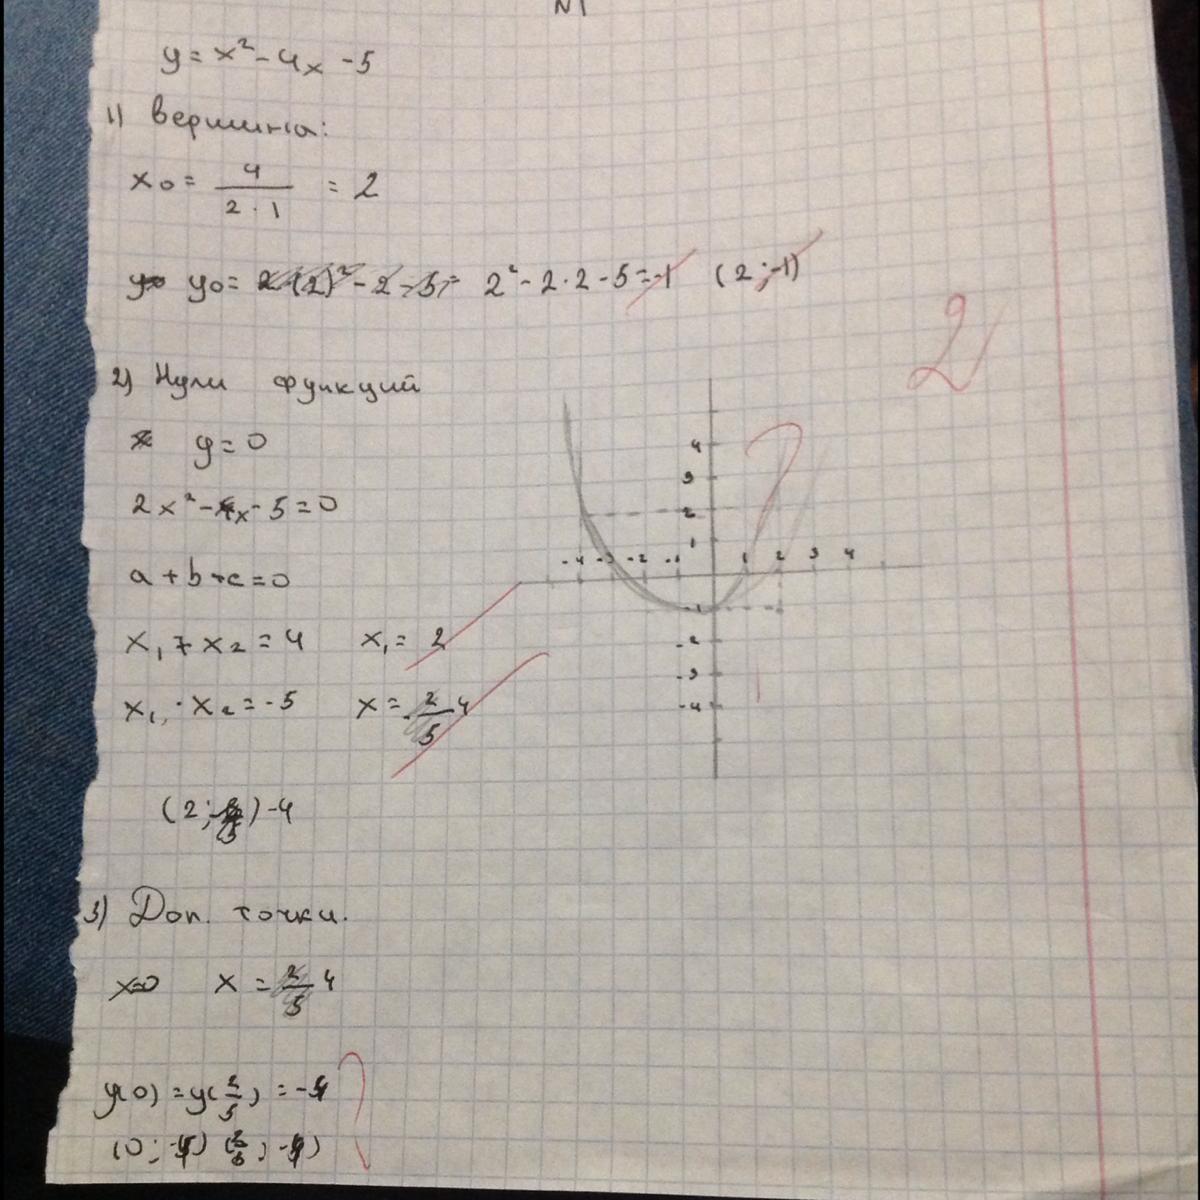 N1
y = x² - 4x - 5
1) вершина:
x₀ = 4 / 2·1 = 2
y₀ = 2² - 2·2 - 5 = -1 (2; -1)
2
2) Нули функций
y = 0
2x² - 4x - 5 = 0
a + b + c = 0
x₁ + x₂ = 4 x₁ = 2
x₁ · x₂ = -5 x = -4
(2; ) -4
4
3
2
1
-4 -3 -2 -1 1 2 3 4
-1
-2
-3
-4
3) Доп. точки.
x=0 x = 4
y(0) = y(2/5) =